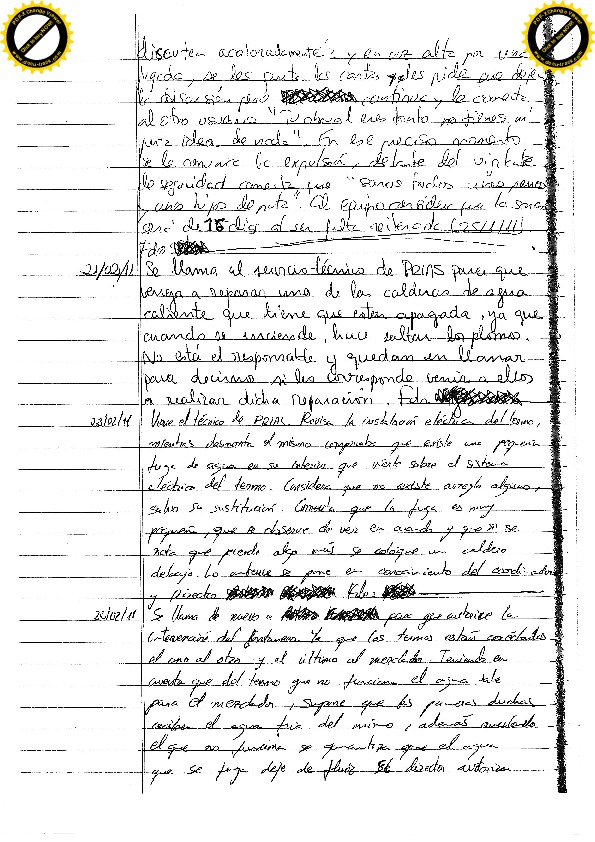 discuten acaloradamente y en voz alta por una
jugada, se les canta las cartas y les pide que dejen
la discusión pero continua y le comenta
al otro usuario "Tu chaval eres tonto no tienes ni
puta idea de nada". En ese preciso momento
se le comunica la expulsión, delante del vigilante
de seguridad comenta que "somos todos unos perros
y unos hijos de puta". El equipo considera que la sanción
será de 15 días al ser falta reiterada (25/1/11)
Fdo:
21/02/11 Se llama al servicio técnico de PRIAS para que
venga a reparar una de las calderas de agua
caliente que tiene que estar apagada, ya que
cuando se enciende, hace saltar los plomos.
No está el responsable y quedan en llamar
para decirnos si les corresponde venir a ellos
a realizar dicha reparación. Fdo
23/02/11 Viene el técnico de PRIAS. Revisa la instalación eléctrica del termo,
mientras desmonta el mismo comprueba que existe una pequeña
fuga de agua en su interior que vierte sobre el sistema
eléctrico del termo. Considera que no existe arreglo alguno,
salvo su sustitución. Comenta que la fuga es muy
pequeña, que se observe de vez en cuando y que si se
nota que pierde algo más se coloque un caldero
debajo. Lo anterior se pone en conocimiento del coordinador
y Director Fdo:
23/02/11 Se llama de nuevo a para que autorice la
intervención del fontanero ya que los termos están conectados
el uno al otro y el último al mezclador. Teniendo en
cuenta que del termo que no funciona el agua sale
para el mezclador, supone que las primeras duchas
reciben el agua fría del mismo, además anulando
el que no funciona se garantiza que el agua
que se fuga deje de fluir. El director autoriza